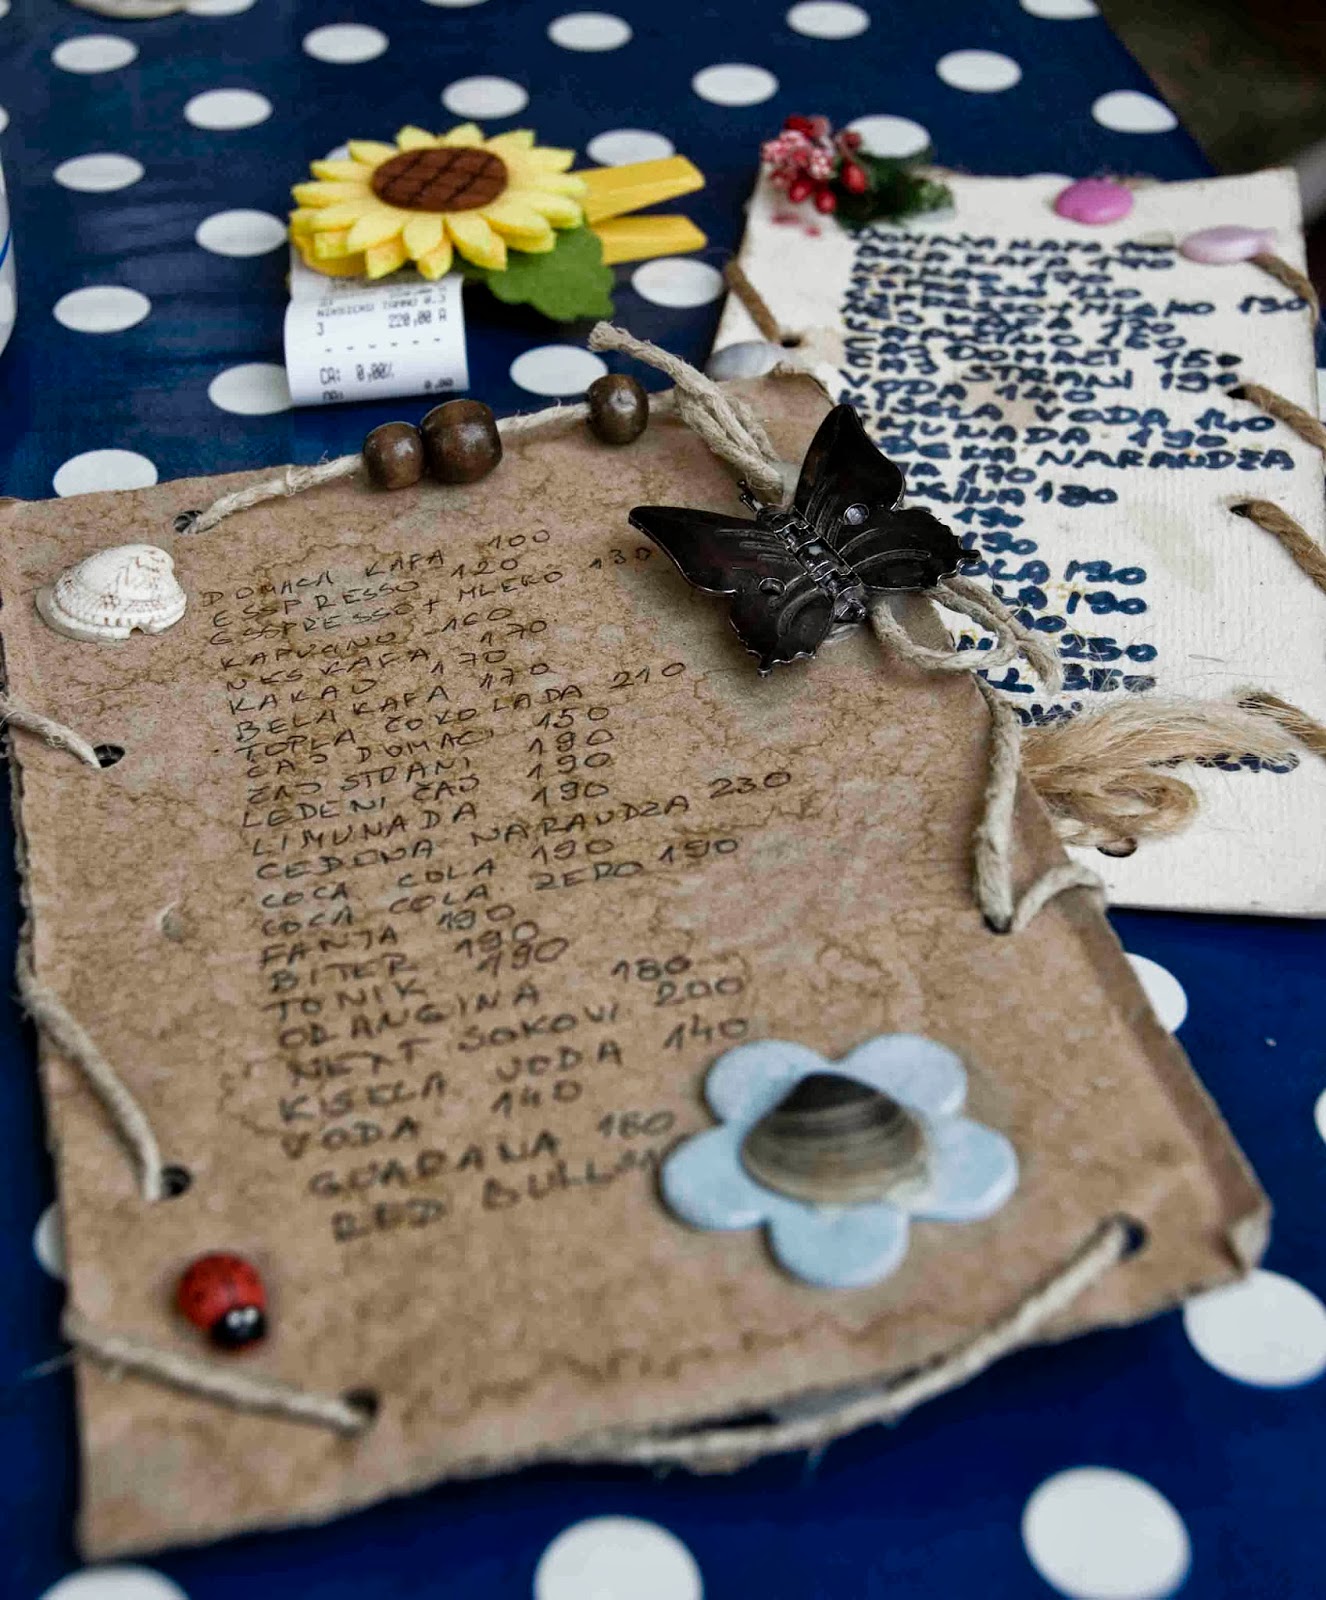 NIKSICKO TAMNO 0.3
3 220,00 A
CA: 0,00%
0,00
DOMAĆA KAFA 100
ESSPRESSO 120
ESSPRESSO + MLEKO 130
KAPUCINO 160
NES KAFA 170
KAKAO 170
BELA KAFA 170
TOPLA ČOKOLADA 210
ČAJ DOMAĆI 150
ČAJ STRANI 190
LEDENI ČAJ 190
LIMUNADA 190
CEĐENA NARANDŽA 230
COCA COLA 190
COCA COLA ZERO 190
FANTA 190
BITER 190
TONIK 190
ORANGINA 180
NEXT SOKOVI 200
KISELA VODA 140
VODA 140
GUARANA 180
RED BULL
DOMAĆA KAFA
BELA KAFA 170
KAKAO 170
ESPRESSO 120
ESPRESSO + MLEKO 130
NES KAFA 170
KAPUCINO 160
ČAJ DOMAĆI 150
ČAJ STRANI 190
VODA 140
KISELA VODA 140
LIMUNADA 190
CEĐENA NARANDŽA
170
180
190
190
190
190
250